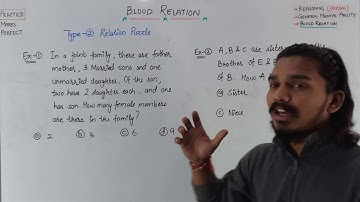 PRACTICE
MAKES
PERFECT
BLOOD RELATION
→ REASONING (VERBAL)
→ GENERAL MENTAL ABILITY
→ BLOOD RELATION
Type-② Relation Puzzle
Ex-① In a joint family, there are father
mother, 3 Married sons and one
unmarried daughter. Of the son,
two have 2 daughter each, and one
has son. How many female members
are there in the family?
ⓐ 2 ⓑ 3 ⓒ 6 ⓓ 9
Ex-② A, B & C are sister
Brother of E &
of B. How A
ⓐ Sister
ⓒ Niece